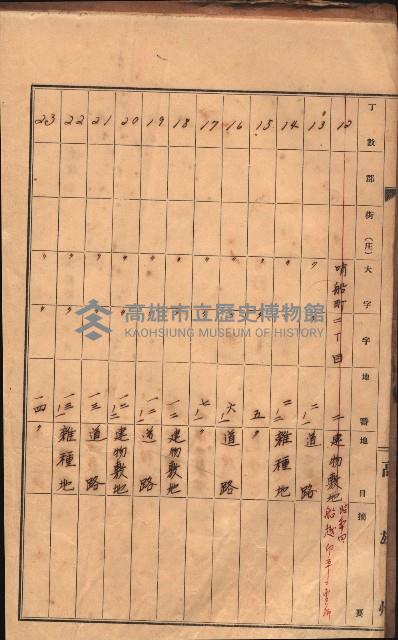 丁數 郡 街(庄) 大字 字 地番 地目 摘要
12 哨船町二丁目 二 建物敷地
13 〃 二ノ一 道路
14 〃 〃 二ノ二 雜種地
15 〃 〃 五 〃
16 〃 〃 六ノ一 道路
17 〃 〃 七ノ一 〃
18 〃 〃 一一 建物敷地
19 〃 〃 一一ノ一 道路
20 〃 〃 一二ノ一 建物敷地
21 〃 〃 一三 道路
22 〃 〃 一三ノ一 雜種地
23 〃 〃 一四 〃
高雄州
高雄市立歷史博物館
KAOHSIUNG MUSEUM OF HISTORY